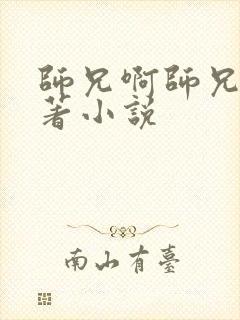 師兄啊師兄
著小説
南山有臺